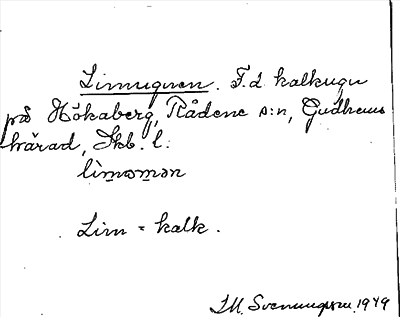 Limugnen. F.d. kalkugn
på Hökaberg, Rådene s:n, Gudhems
härad, Skb. l.
Lim = kalk.
Svenungsson. 1949